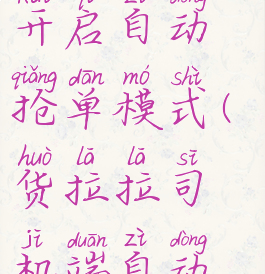 kāi qǐ zì dòng
开启自动
qiǎng dān mó shì
抢单模式(
huò lā lā sī
货拉拉司
jī duān zì dòng
机端自动